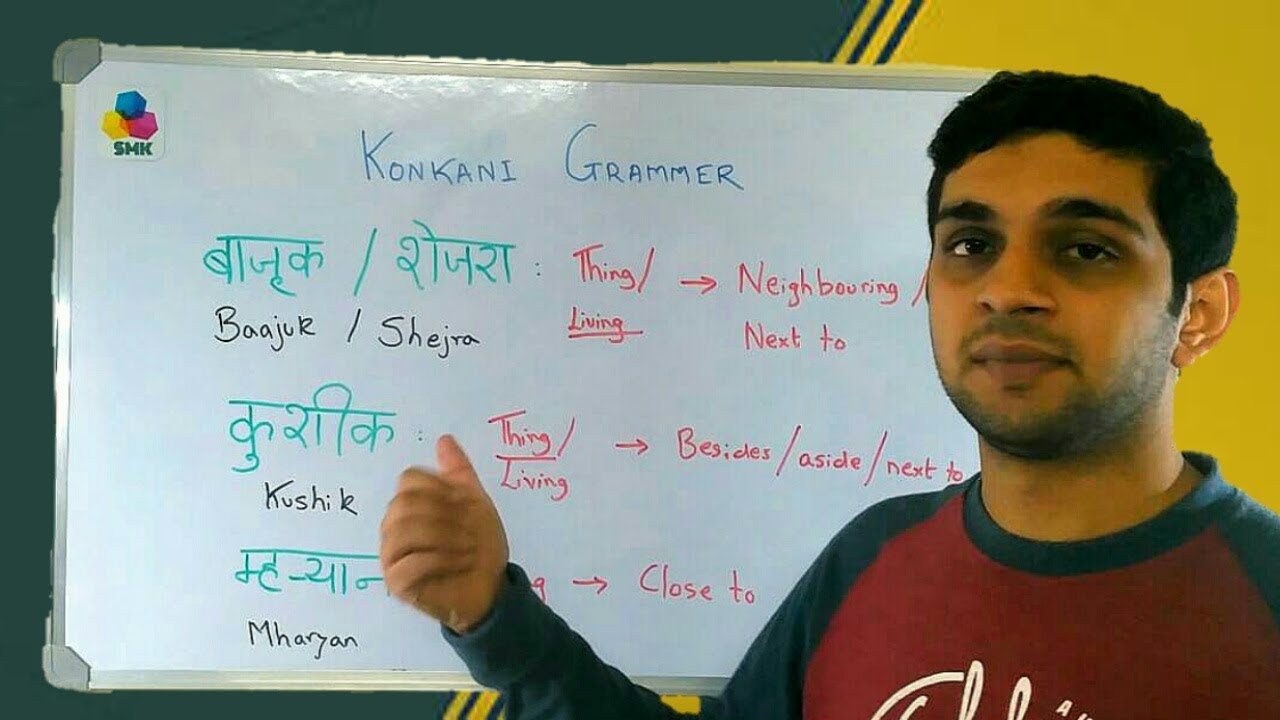 SMK
KONKANI GRAMMER
बाजूक / शेजरा : Thing/ → Neighbouring /
Baajuk / Shejra Living Next to
कुशीक : Thing/ → Besides/aside/next to
Kushik Living
म्हऱ्यान → Close to
Mharyan